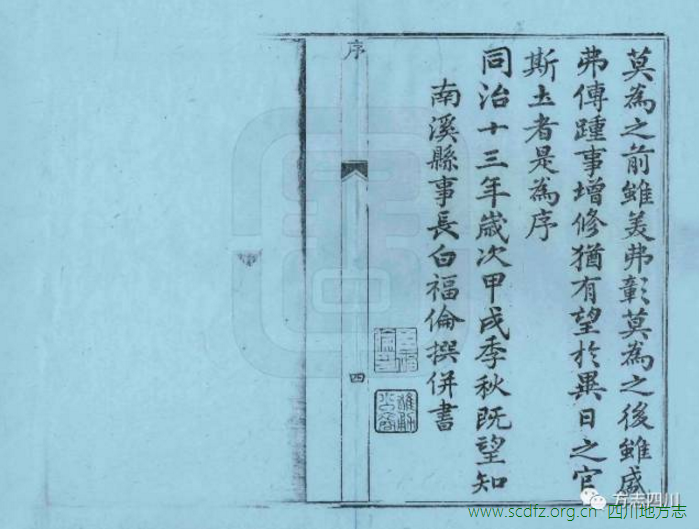 莫為之前雖美弗彰莫為之後雖盛
弗傳踵事增修猶有望於異日之官
斯土者是為序
同治十三年歲次甲戌季秋既望知
南溪縣事長白福倫撰併書
序
四
方志四川
www.scdfz.org.cn 四川地方志